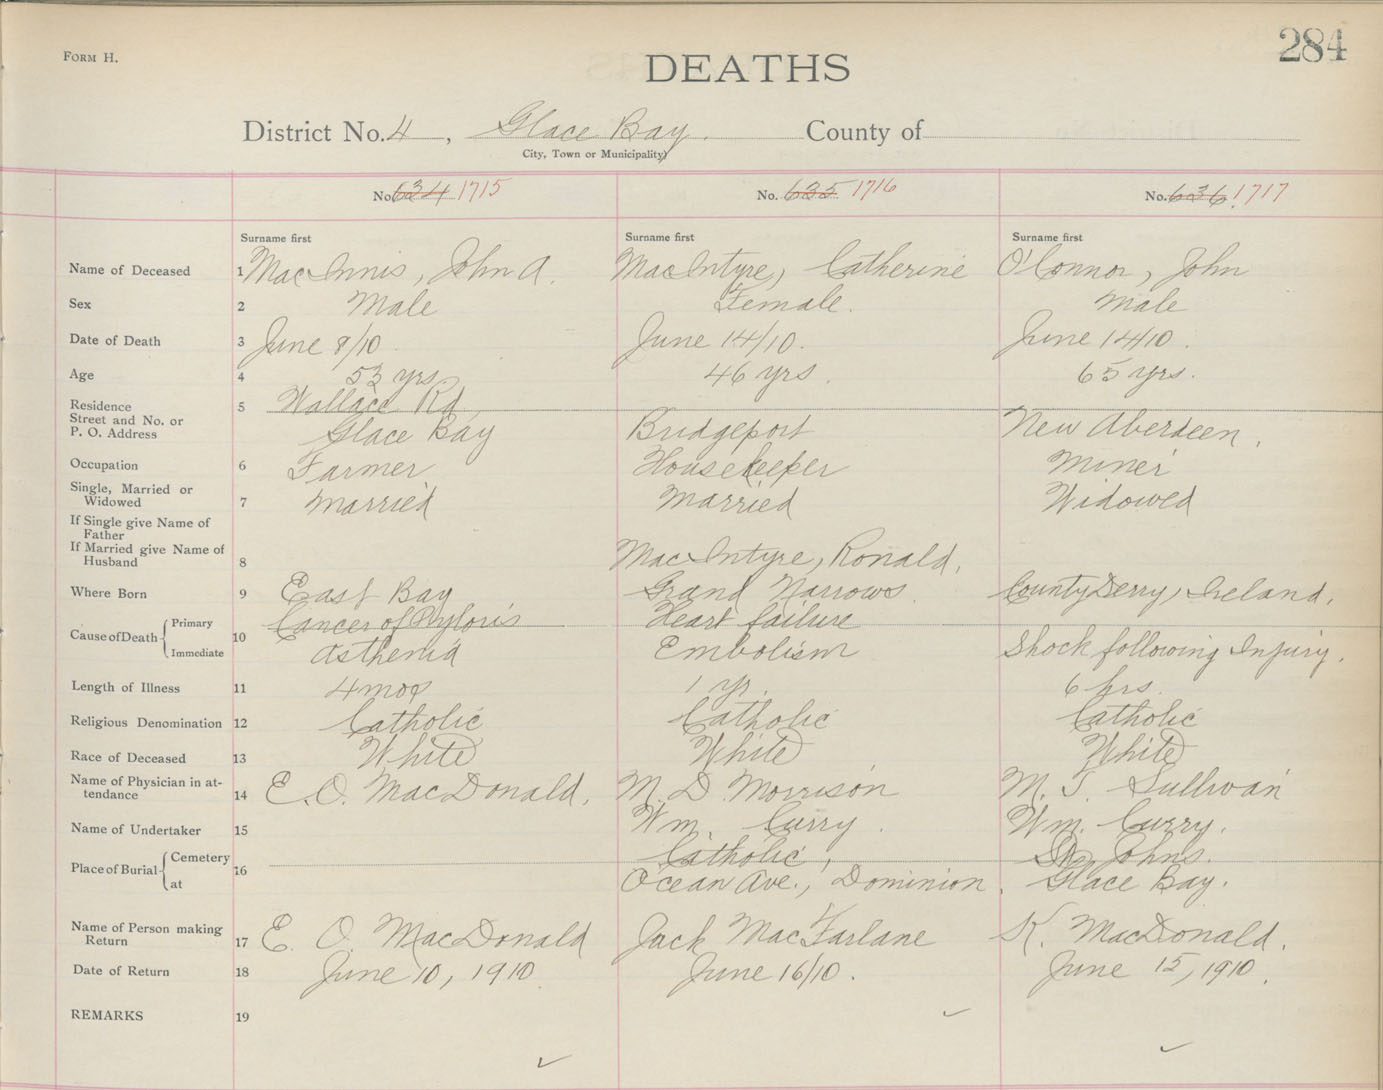 FORM H.
284
DEATHS
District No. 4, Glace Bay. County of
City, Town or Municipality)
No. 634 1715 No. 635 1716 No. 636. 1717
Surname first Surname first Surname first
Name of Deceased 1 MacInnis, John A. MacIntyre, Catherine O'Connor, John
Sex 2 Male Female. Male
Date of Death 3 June 8/10 June 14/10. June 14/10.
Age 4 53 yrs 46 yrs. 65 yrs.
Residence 5 Wallace Rd,
Street and No. or
P. O. Address Glace Bay Bridgeport New Aberdeen,
Occupation 6 Farmer Housekeeper Miner
Single, Married or
Widowed 7 Married Married Widowed
If Single give Name of
Father
If Married give Name of
Husband 8 MacIntyre, Ronald.
Where Born 9 East Bay Grand Narrows. County Derry, Ireland.
Cause of Death { Primary 10 Cancer of Pyloris Heart failure
Immediate Asthenia Embolism Shock following Injury.
Length of Illness 11 4 mos 1 yr. 6 hrs.
Religious Denomination 12 Catholic Catholic Catholic
Race of Deceased 13 White White White
Name of Physician in at-
tendance 14 E. O. MacDonald. M. D. Morrison M. T. Sullivan
Name of Undertaker 15 Wm. Curry. Wm. Curry.
Place of Burial { Cemetery 16 Catholic, St. Johns.
at Ocean Ave., Dominion. Glace Bay.
Name of Person making
Return 17 E. O. MacDonald Jack MacFarlane K. MacDonald.
Date of Return 18 June 10, 1910 June 16/10. June 15, 1910.
REMARKS 19